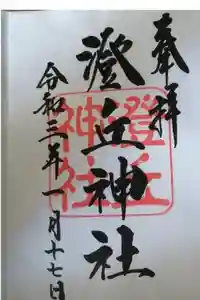 奉拝
澄丘神社
澄丘神社
令和三年一月十七日